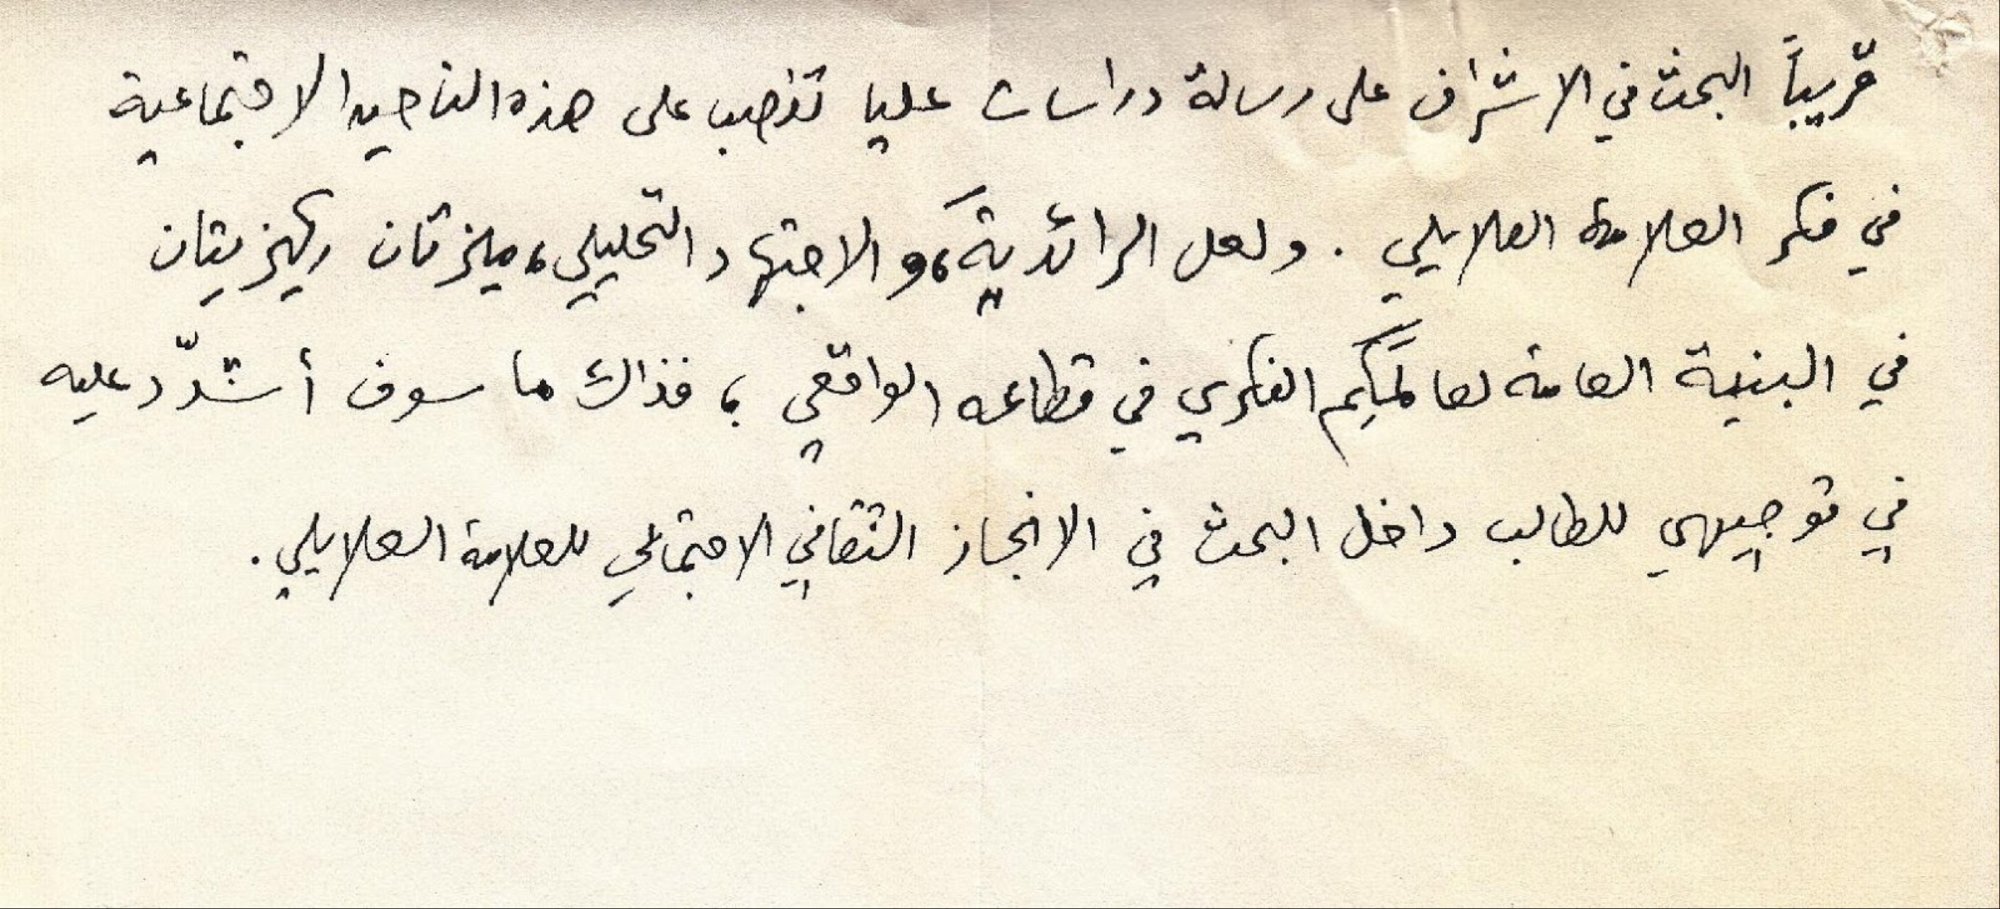 قريباً البحث في الاشراف على رسالة دراسات عليا تنصب على هذه الناحية الاجتماعية
في فكر العلامة العلايلي . ولعل الرائديةَ، والاجتهاد التحليلي، ميزتان ركيزيتان
في البنية العامة لعالَمِكُم الفكري في قطاعه الواقعي ، فذاك ما سوف أشدّد عليه
في توجيهي للطالب داخل البحث في الانجاز الثقافي الاجتماعي للعلامة العلايلي .